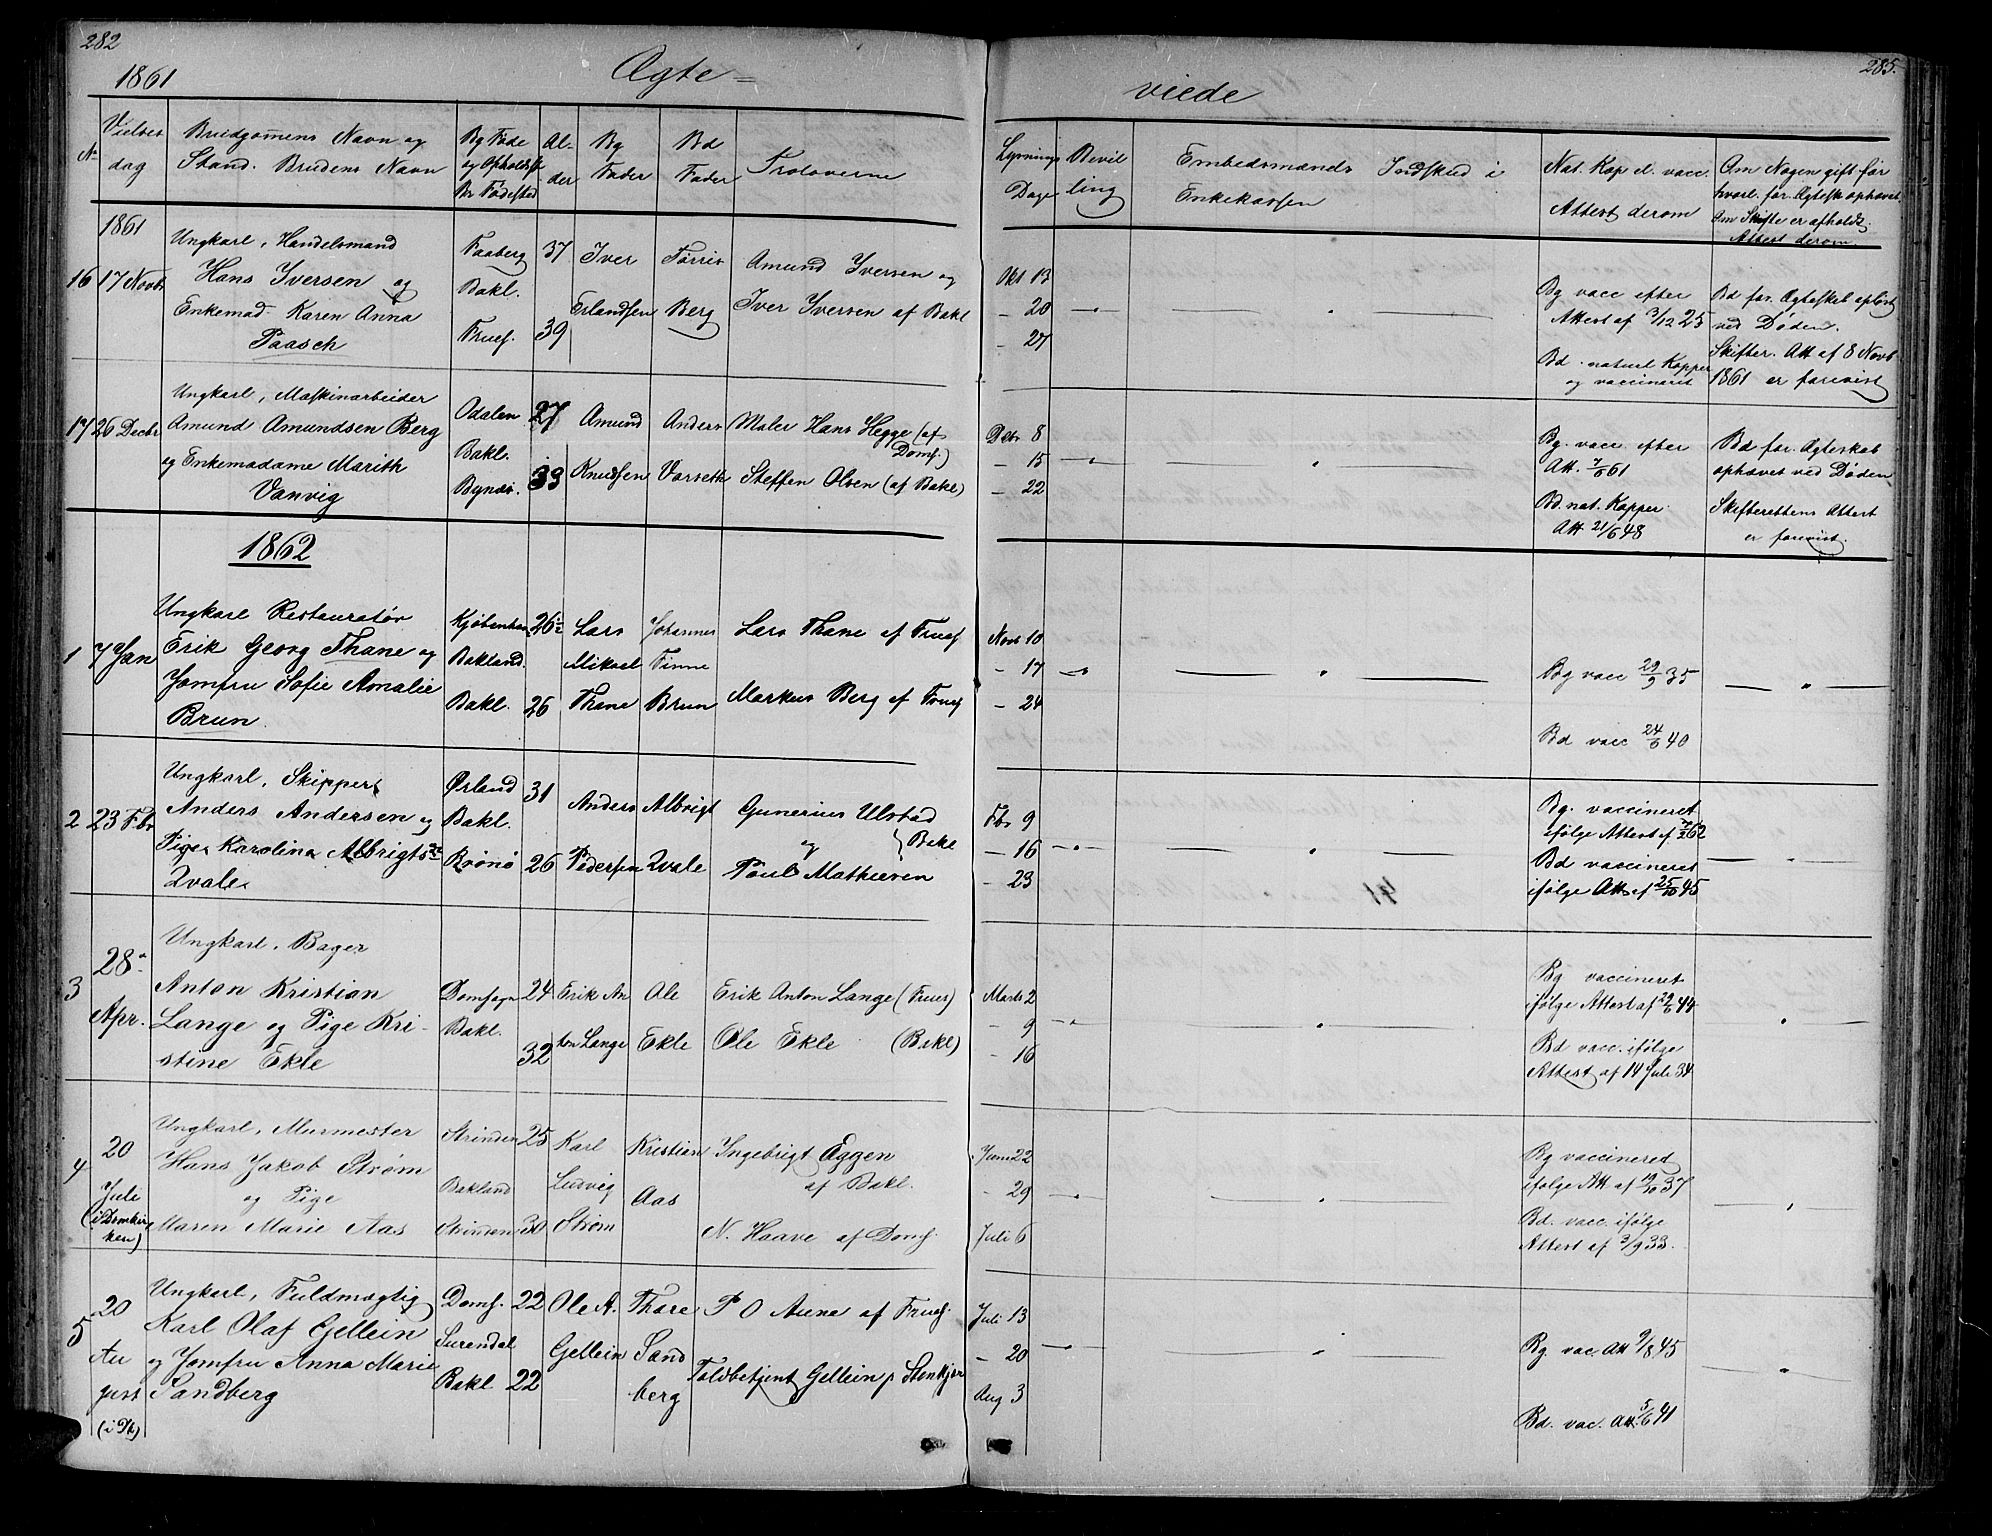 282
1861
Ægte =
No
Vielses dag
Brudgomens Navn og
Stand. Brudens Navn
Bg Føde
og Opholdsst
Br Fødested
Al-
der
Bg
Fader
Bd
Fader
Troloverne
1861
16 17 Novbr
Ungkarl, Handelsmand
Hans Iversen og
Enkemad. Karen Anna
Paasch
Faaberg
Bakl.
Fruef.
37
39
Iver
Erlandsen
Tørris
Berg
Amund Iversen og
Iver Iversen af Bakl
17 26 Decbr
Ungkarl, Maskinarbeider
Amund Amundsen Berg
og Enkemadame Marith
Vanvig
Odalen
Bakl.
Bynæs.
27
33
Amund
Knudsen
Anders
Varseth
Maler Hans Hegge (af
Domf)
Steffen Olsen (af Bakl)
1862
1 7 Jan
Ungkarl Restauratør
Erik Georg Thane og
Jomfru Sofie Amalie
Brun.
Kjøbenhavn
Bakland.
Bakl.
26
26
Lars
Mikael
Thane
Johannes
Finne
Brun
Lars Thane af Fruef
Markus Berg af Fruef
2 23 Fbr
Ungkarl, Skipper
Anders Andersen og
Pige Karolina Albrigtsd
Qvale
Ørland
Bakl.
Brønø
31
26
Anders
Pedersen
Albrigt
Qvale
Gunerius Ulstad
og } Bakl
Poul Mathiesen
3
28
Apr.
Ungkarl, Bager
Anton Kristian
Lange og Pige Kri-
stine Ekle
Domsogn
Bakl.
24
32
Erik An
ton Lange
Ole
Ekle
Erik Anton Lange (Frues)
Ole Ekle (Bakl)
4
20
Juli
(i Domkir
ken)
Ungkarl, Murmester
Hans Jakob Strøm
og Pige
Maren Marie Aas
Strinden
Bakland
Strinden
25
30
Karl
Ludvig
Strøm
Kristian
Aas
Ingebrigt Eggen
af Bakl.
N. Haave af Domf.
5
20
Au
gust
Ungkarl, Fuldmægtig
Karl Olaf Gellein
og Jomfru Anna Marie
Sandberg
Domf.
Surendal
Bakl
22
22
Ole A.
Gellein
Thore
Sand
berg
P O Aune af Fruef.
Toldbetjent Gellein p Stenkjær
285.
viede
Lysnings
Dage
Bevil
ling
Embedsmænds Indskud i
Enkekassen
Nat. Kop el. vacc.
Attest derom
Om Nogen gift før
hvorl. for. Ægtesk ophævet.
Om Skifte er afholdt
Attest derom
Okt 13
- 20
- 27
Bg vacc efter
Attest af 3/12 25
Bd. naturl Kopper
og vaccineret
Bd for. Ægteskab opløst
ved Døden.
Skifter. Att af 8 Novb
1861 er forevist
Decbr 8
- 15
- 22
Bg. vacc. efter
Att. 7/9 61
Bd. nat. Kopper
Att 21/6 48
Bd for. Ægteskab
ophævet ved Døden
Skifterettens Attest
er forevist.
Novb 10
- 17
- 24
Bg vacc 29/9 35
Bd vacc 24/6 40
Fbr 9
- 16
- 23
41
Bg. vaccineret
ifølge Attest af 7/2 62
Bd vaccineret
ifølge Att af 25/10 45
Marts 2
- 9
- 16
Bg vaccineret
ifølge Attest af 29/6 44
Bd vacc. ifølge
Attest af 14 Juli 34
Juni 22
- 29
Juli 6
Bg vaccineret
ifølge Att af 19/10 37
Bd. vacc. ifølge
Attest af 3/9 33.
Juli 13
- 20
Aug 3
Bg. vac. Att 9/8 45
Bd. vac. Att. 5/6 41